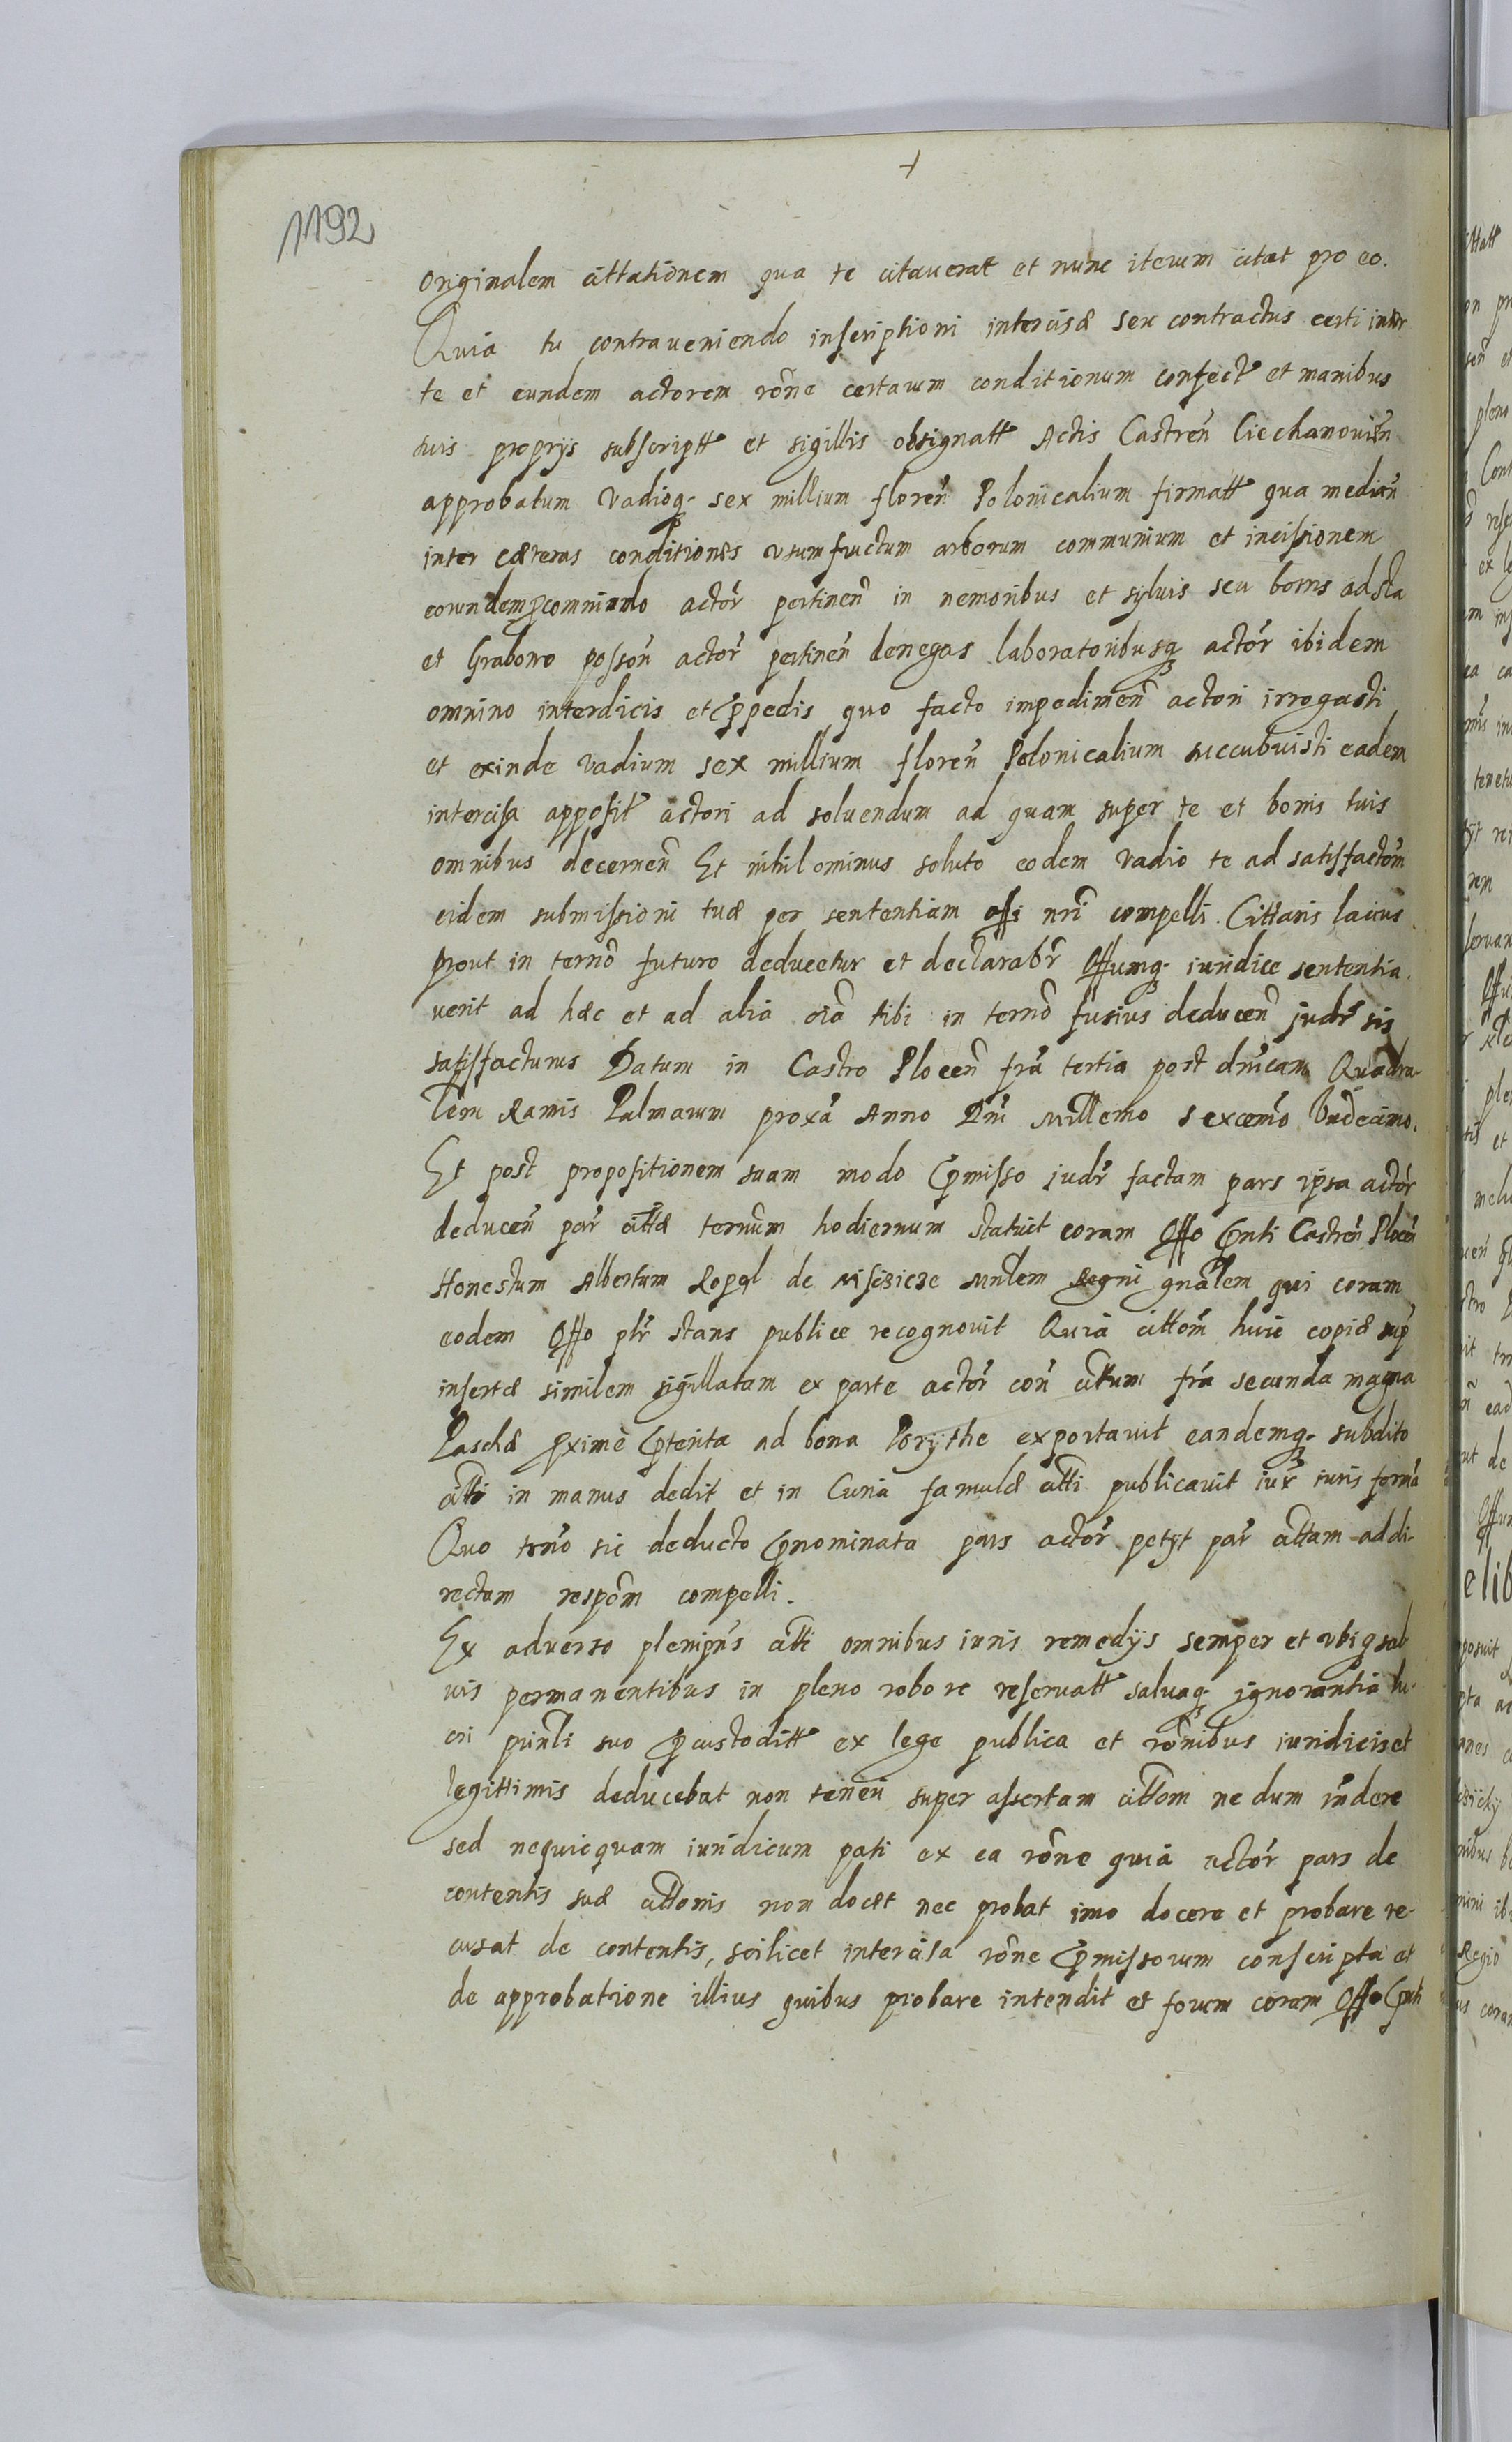 +
1192
originalem cittationem qua te citauerat et nunc iterum citat pro eo.
Quia tu contraueniendo inscriptioni intercisæ seu contractus certi inter
te et eundem actorem rõne certarum conditionum confect et manibus
tuis proprijs subscriptt et sigillis obsignatt Actis Castren̄ Ciechanouien̄
approbatum Vadioq. sex millium floren̄ Polonicalium firmatt qua median̄
inter cæteras conditiones vsumfructum arborum communium et incissionem
eorundem actor̄ pertinen̄ in nemoribus et syluis seu bonis
et Grabowo possōn actor̄ pertinen̄ denegas laboratoribusq actor̄ ibidem
omnino interdicis et p̄pedis quo facto impedimen̄ actori irrogasti
et exinde vadium sex millium floren̄ Polonicalium succubuisti eadem
intercisa apposit actori ad soluendum ad quam super te et bonis tuis
omnibus decernen̄ Et nihilominus soluto eodem vadio te ad satisfactōm
eidem submissioni tuæ per sententiam offi nri compelli. Cittaris lacius
prout in termō futuro deducetur et declarabr̄ Offumq. iuridice sententia.
uerit ad hæc et ad alia oīa tibi in termō fusius deducen̄ judr̄ sis
satisfacturus Datum in Castro Plocen̄ fr̄a tertia post dnīcam Quadra-
lem Ramis Palmarum proxā Anno Dnī Millemo sexcemō Vndecimo.
Et post propositionem suam modo p̄misso judr̄ factam pars ipsa actor̄
deducen̄ par̄ cittæ termum hodiernum statuit coram Offo p̄nti Castren̄ Plocen̄
Honestum Albertum Ropel de Mnlem Regni gnālem qui coram
eodem Offo plr̄ stans publice recognouit Quia cittōm huic copiæ sup̄
insertæ similem sigillatam ex parte actor̄ con̄ cittum fr̄a secunda magna
Paschæ p̄xime p̄terita ad bona exportauit eandemq. subdito
citti in manus dedit et in Curia famulæ citti publicauit iux̄ iuris formā
Quo trnō sic deducto p̄nominata pars actor̄ petyt par̄ cittam ad di-
rectam respōm compelli.
Ex aduerso plenipn̄s citti omnibus iuris remedijs semper et vbiq sal
uis permanentibus in pleno robore reseruatt saluaq. ignorantia lu-
cri suo p̄custoditt ex lege publica et rōnibus iuridicis et
legittimis deducebat non teneri super assertam cittōm ne dum rn̄dere
sed nequicquam iuridicum pati ex ea rōne quia actor̄ pars de
contentis suæ cittonis non docet nec probat imo docere et probare re-
cusat de contentis, scilicet intercisa rōne p̄missorum conscripta et
de approbatione illius quibus probare intendit et forum coram Offo p̄nti